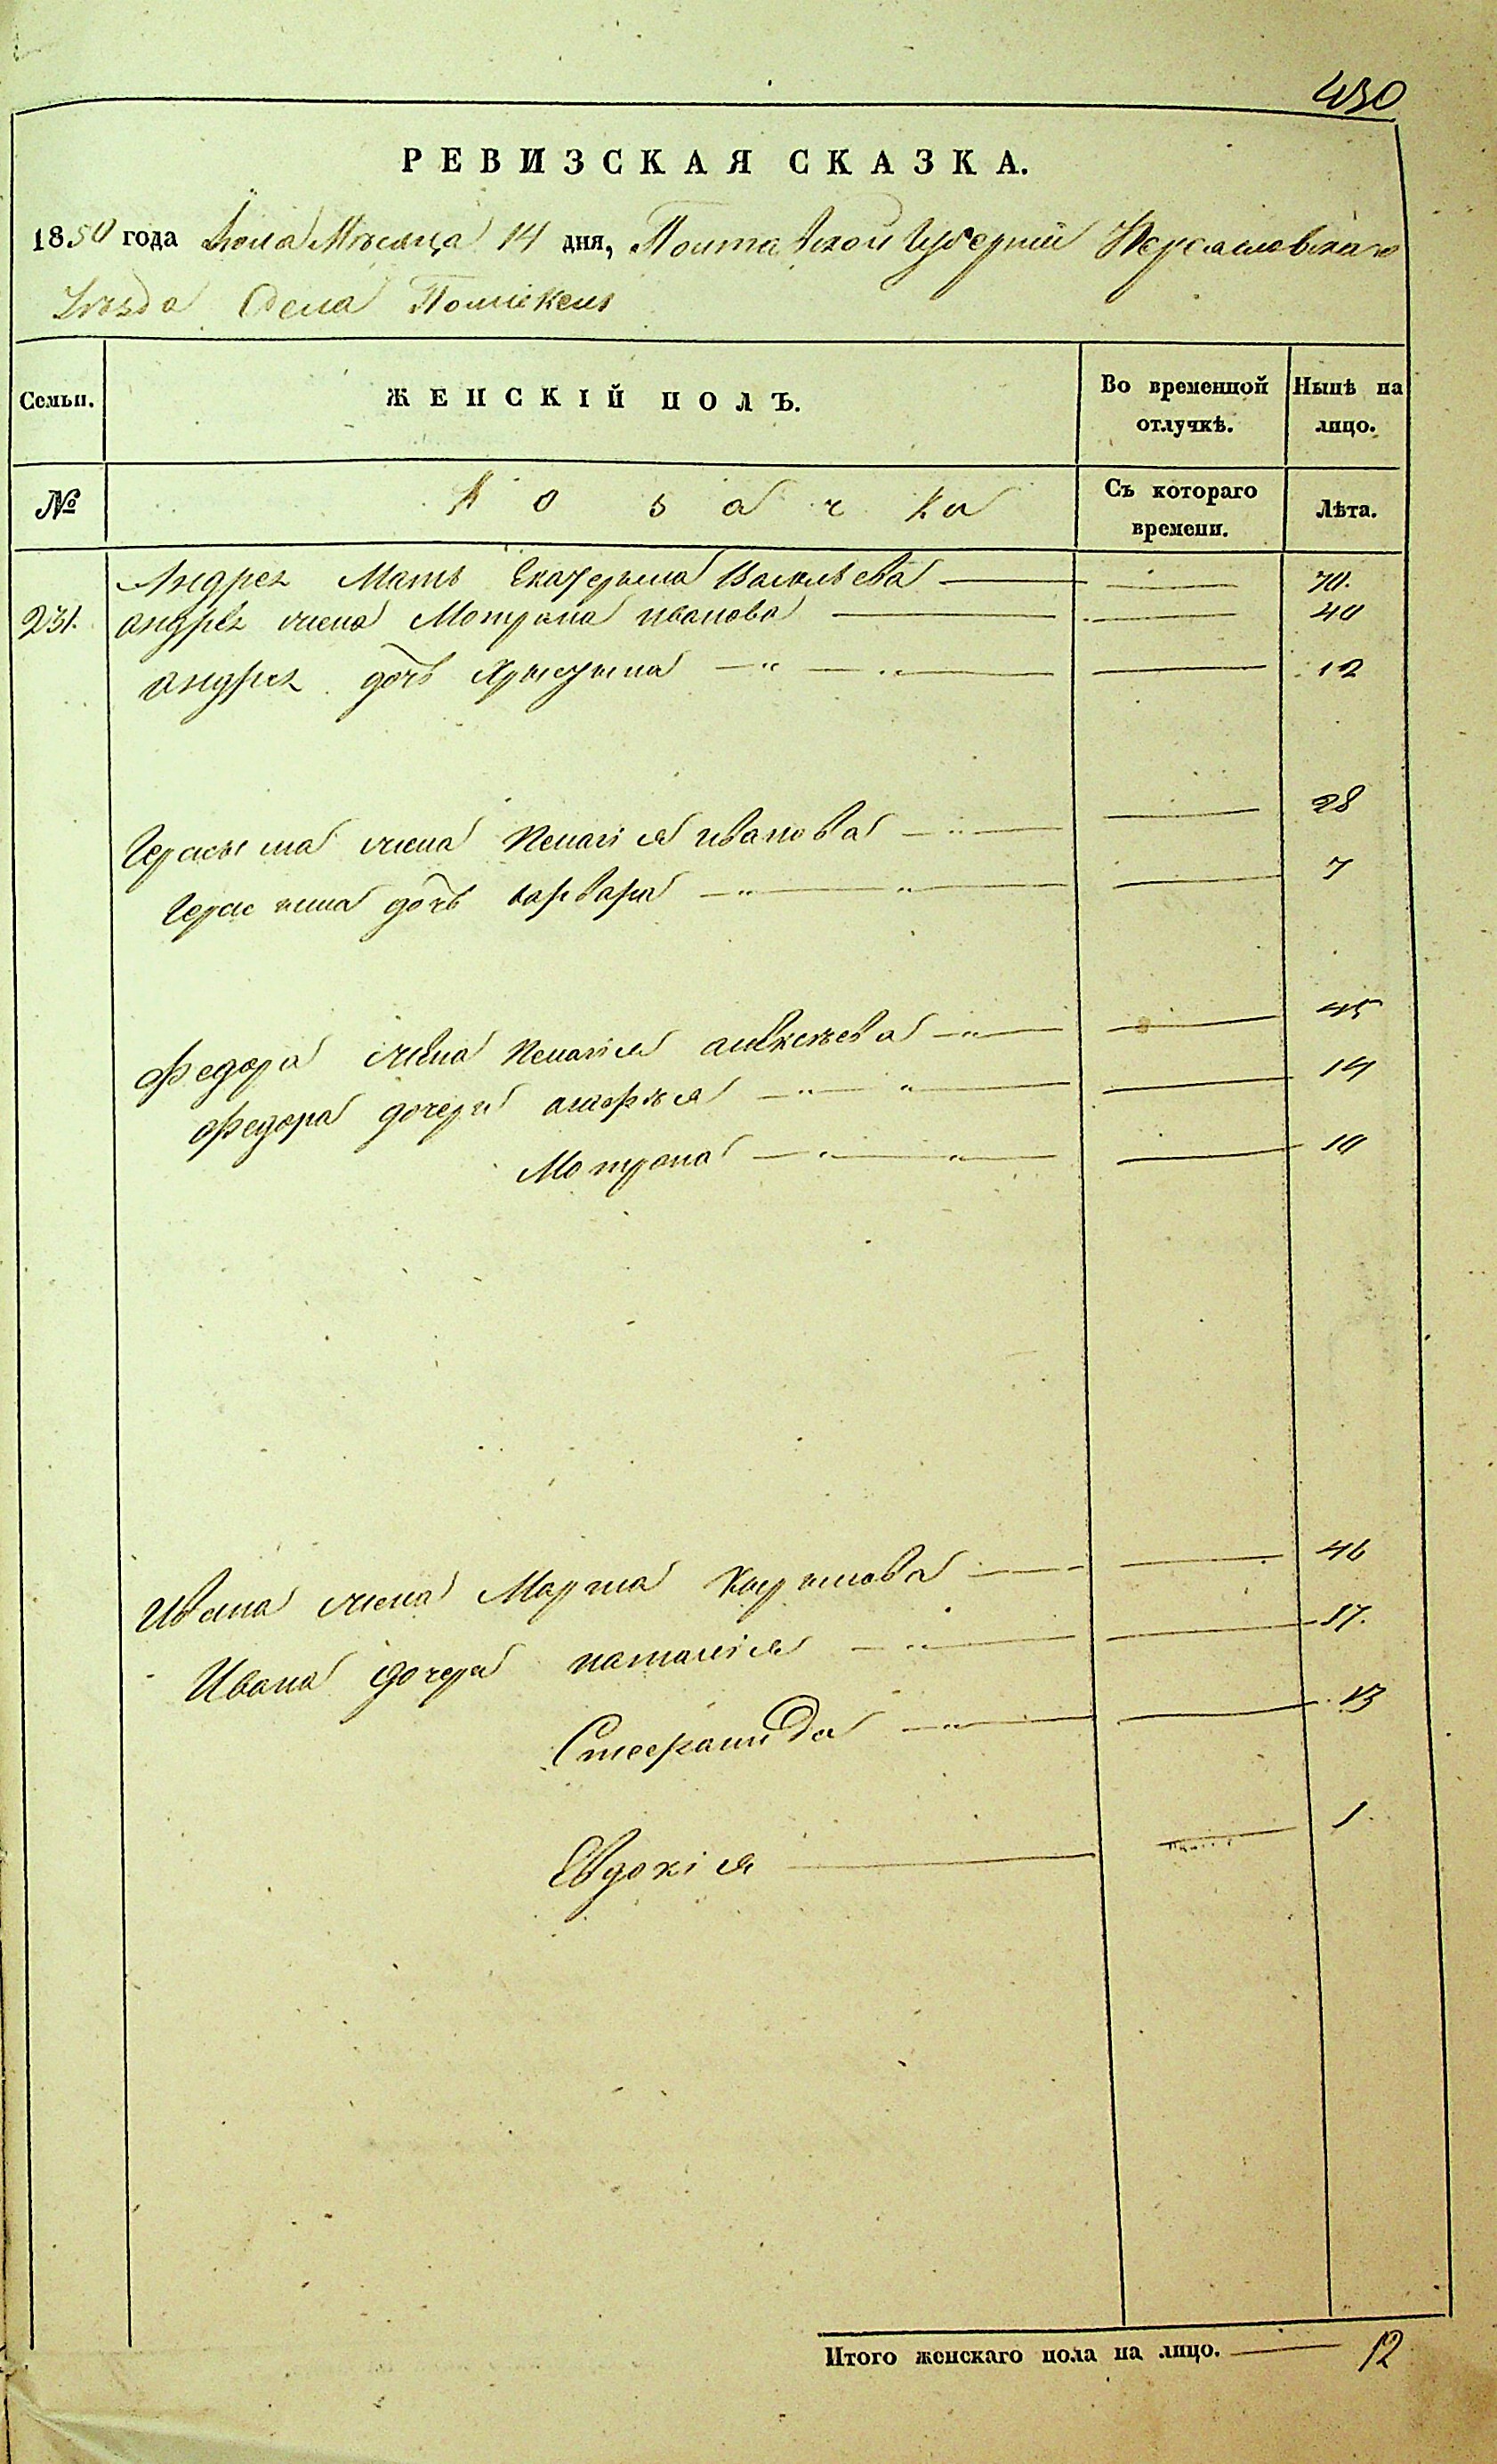 430
РЕВИЗСКАЯ СКАЗКА.
1850 года Іюля Мѣсяца 14 дня, Полтавской Губерніи Переяславскаго
Уѣзда Села Помокель
Семьи. ЖЕНСКІЙ ПОЛЪ. Во временной отлучкѣ. Нынѣ на лицо.
№ Козачка Съ котораго времени. Лѣта.
Андрея Мать Екатерина Васильева — — 70.
231. Андрея жена Мотрона Иванова — — 40
Андрея дочь Христина — " — " — — 12
Герасима жена Пелагія Иванова — " — — 28
Герасима дочь Варвара — " — " — — 7
Федора жена Пелагія Алексѣева — " — — 45
Федора дочери Агафія — " — " — — 14
Мотрона — " — " — — 10
Ивана жена Марфа Кирилова — — 46
Ивана дочери Наталія — " — — 17.
Степанида — " — — 13
Евдокія — — 1
Итого женскаго пола на лицо. — 12